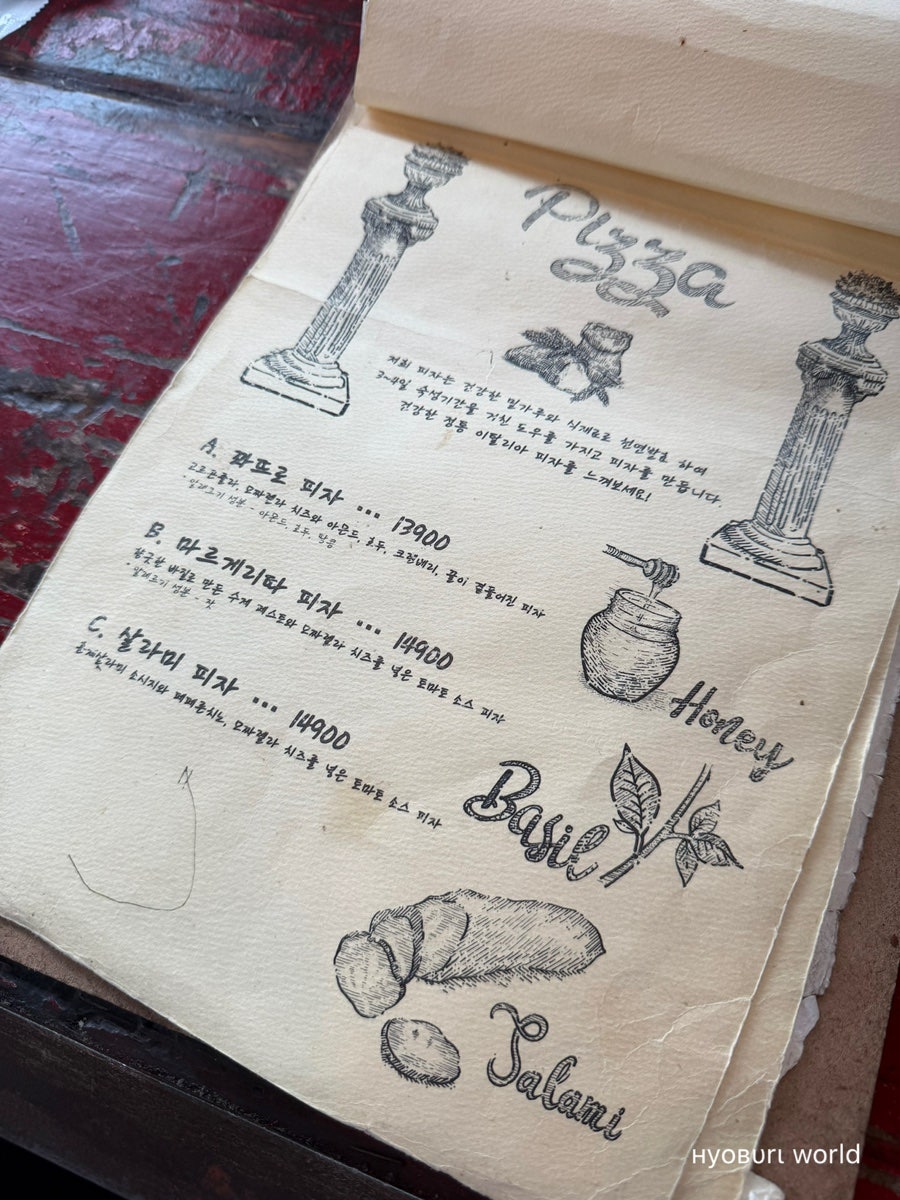 Pizza
저희 피자는 건강한 밀가루와 식재료로 천연발효 하여
3~4일 숙성기간을 거친 도우를 가지고 피자를 만듭니다.
건강한 정통 이탈리아 피자를 느껴보세요!
A. 콰뜨로 피자 ... 13900
고르곤졸라, 모짜렐라 치즈와 아몬드, 호두, 크랜베리, 꿀이 곁들어진 피자
* 알레르기 성분 - 아몬드, 호두, 땅콩
B. 마르게리따 피자 ... 14900
향긋한 바질로 만든 수제 페스토와 모짜렐라 치즈를 넣은 토마토 소스 피자
* 알레르기 성분 - 잣
C. 살라미 피자 ... 14900
훈제살라미 소시지와 페페론치노, 모짜렐라 치즈를 넣은 토마토 소스 피자
Honey
Basil
Salami
HYOBURL world